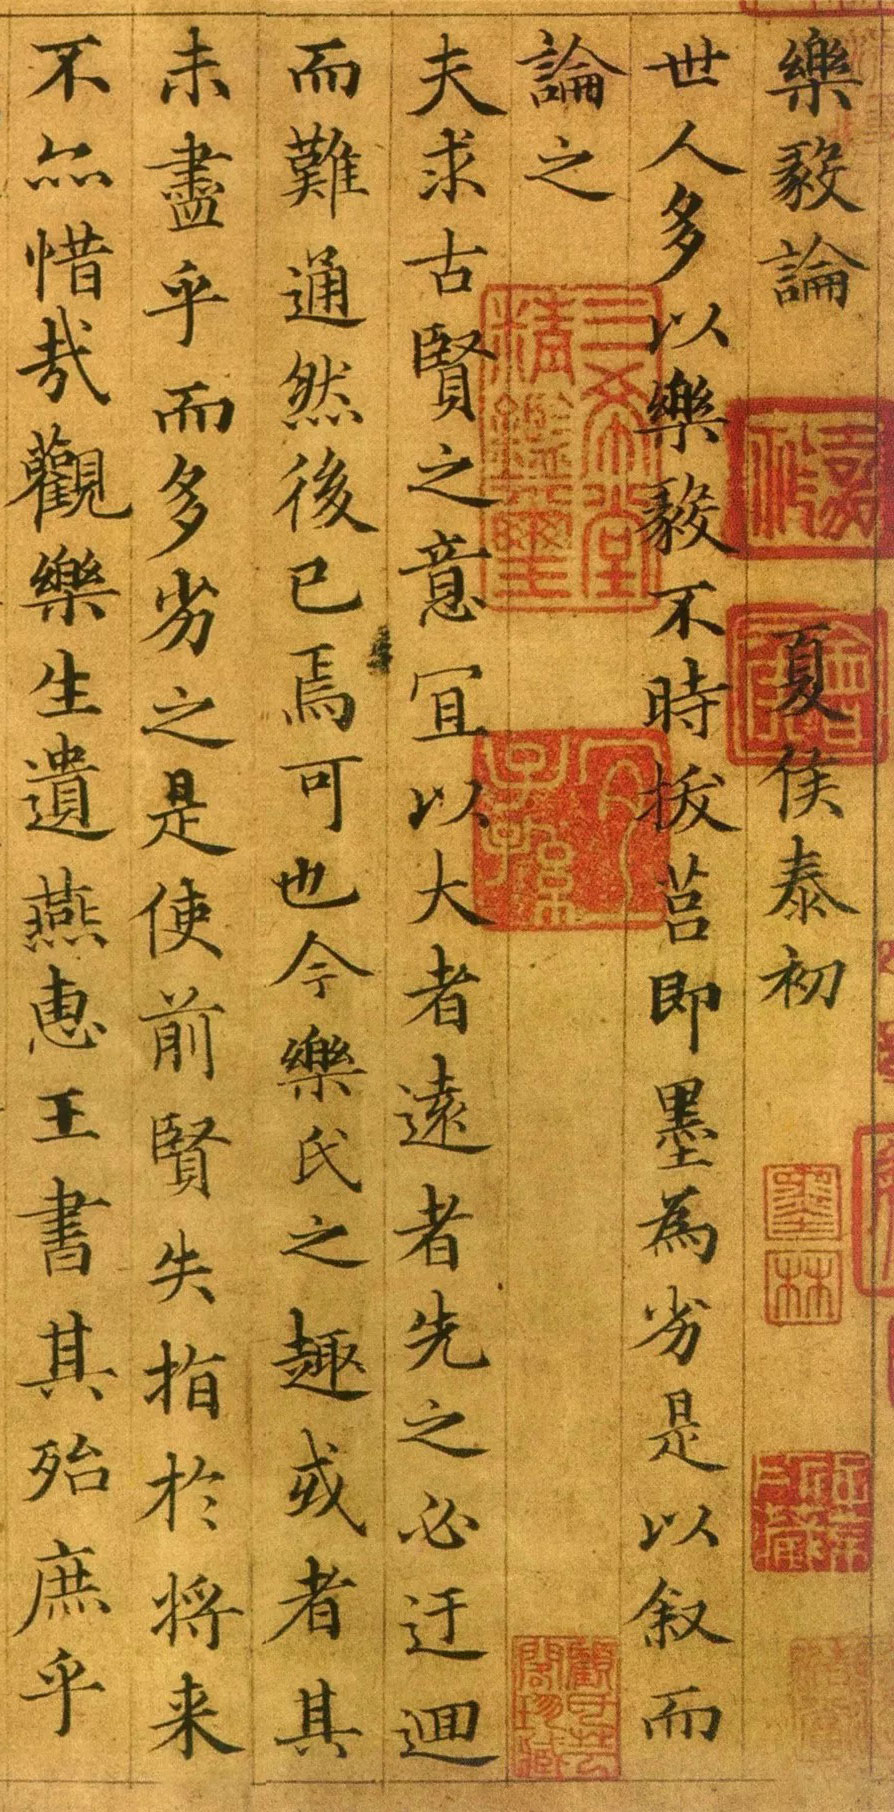 樂毅論 夏侯泰初
世人多以樂毅不時拔莒即墨為劣是以叙而
論之
夫求古賢之意宜以大者遠者先之必迂迴
而難通然後已焉可也今樂氏之趣或者其
未盡乎而多劣之是使前賢失指於将来
不亦惜哉觀樂生遺燕惠王書其殆庶乎
三希堂
精鑑璽
宜
子孫
墨
林